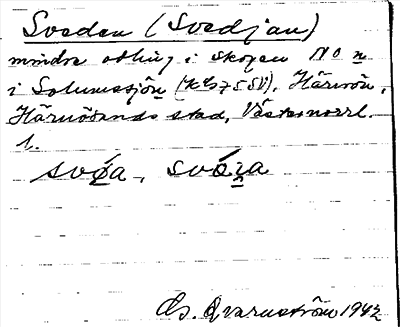 Svedan (Svedjan)
mindre odling i skogen NO n
i Solumssjön (kb 7 SSV), Härnön,
Härnösands stad, Västernorrl.
l.
Gs. Qvarnström 1942